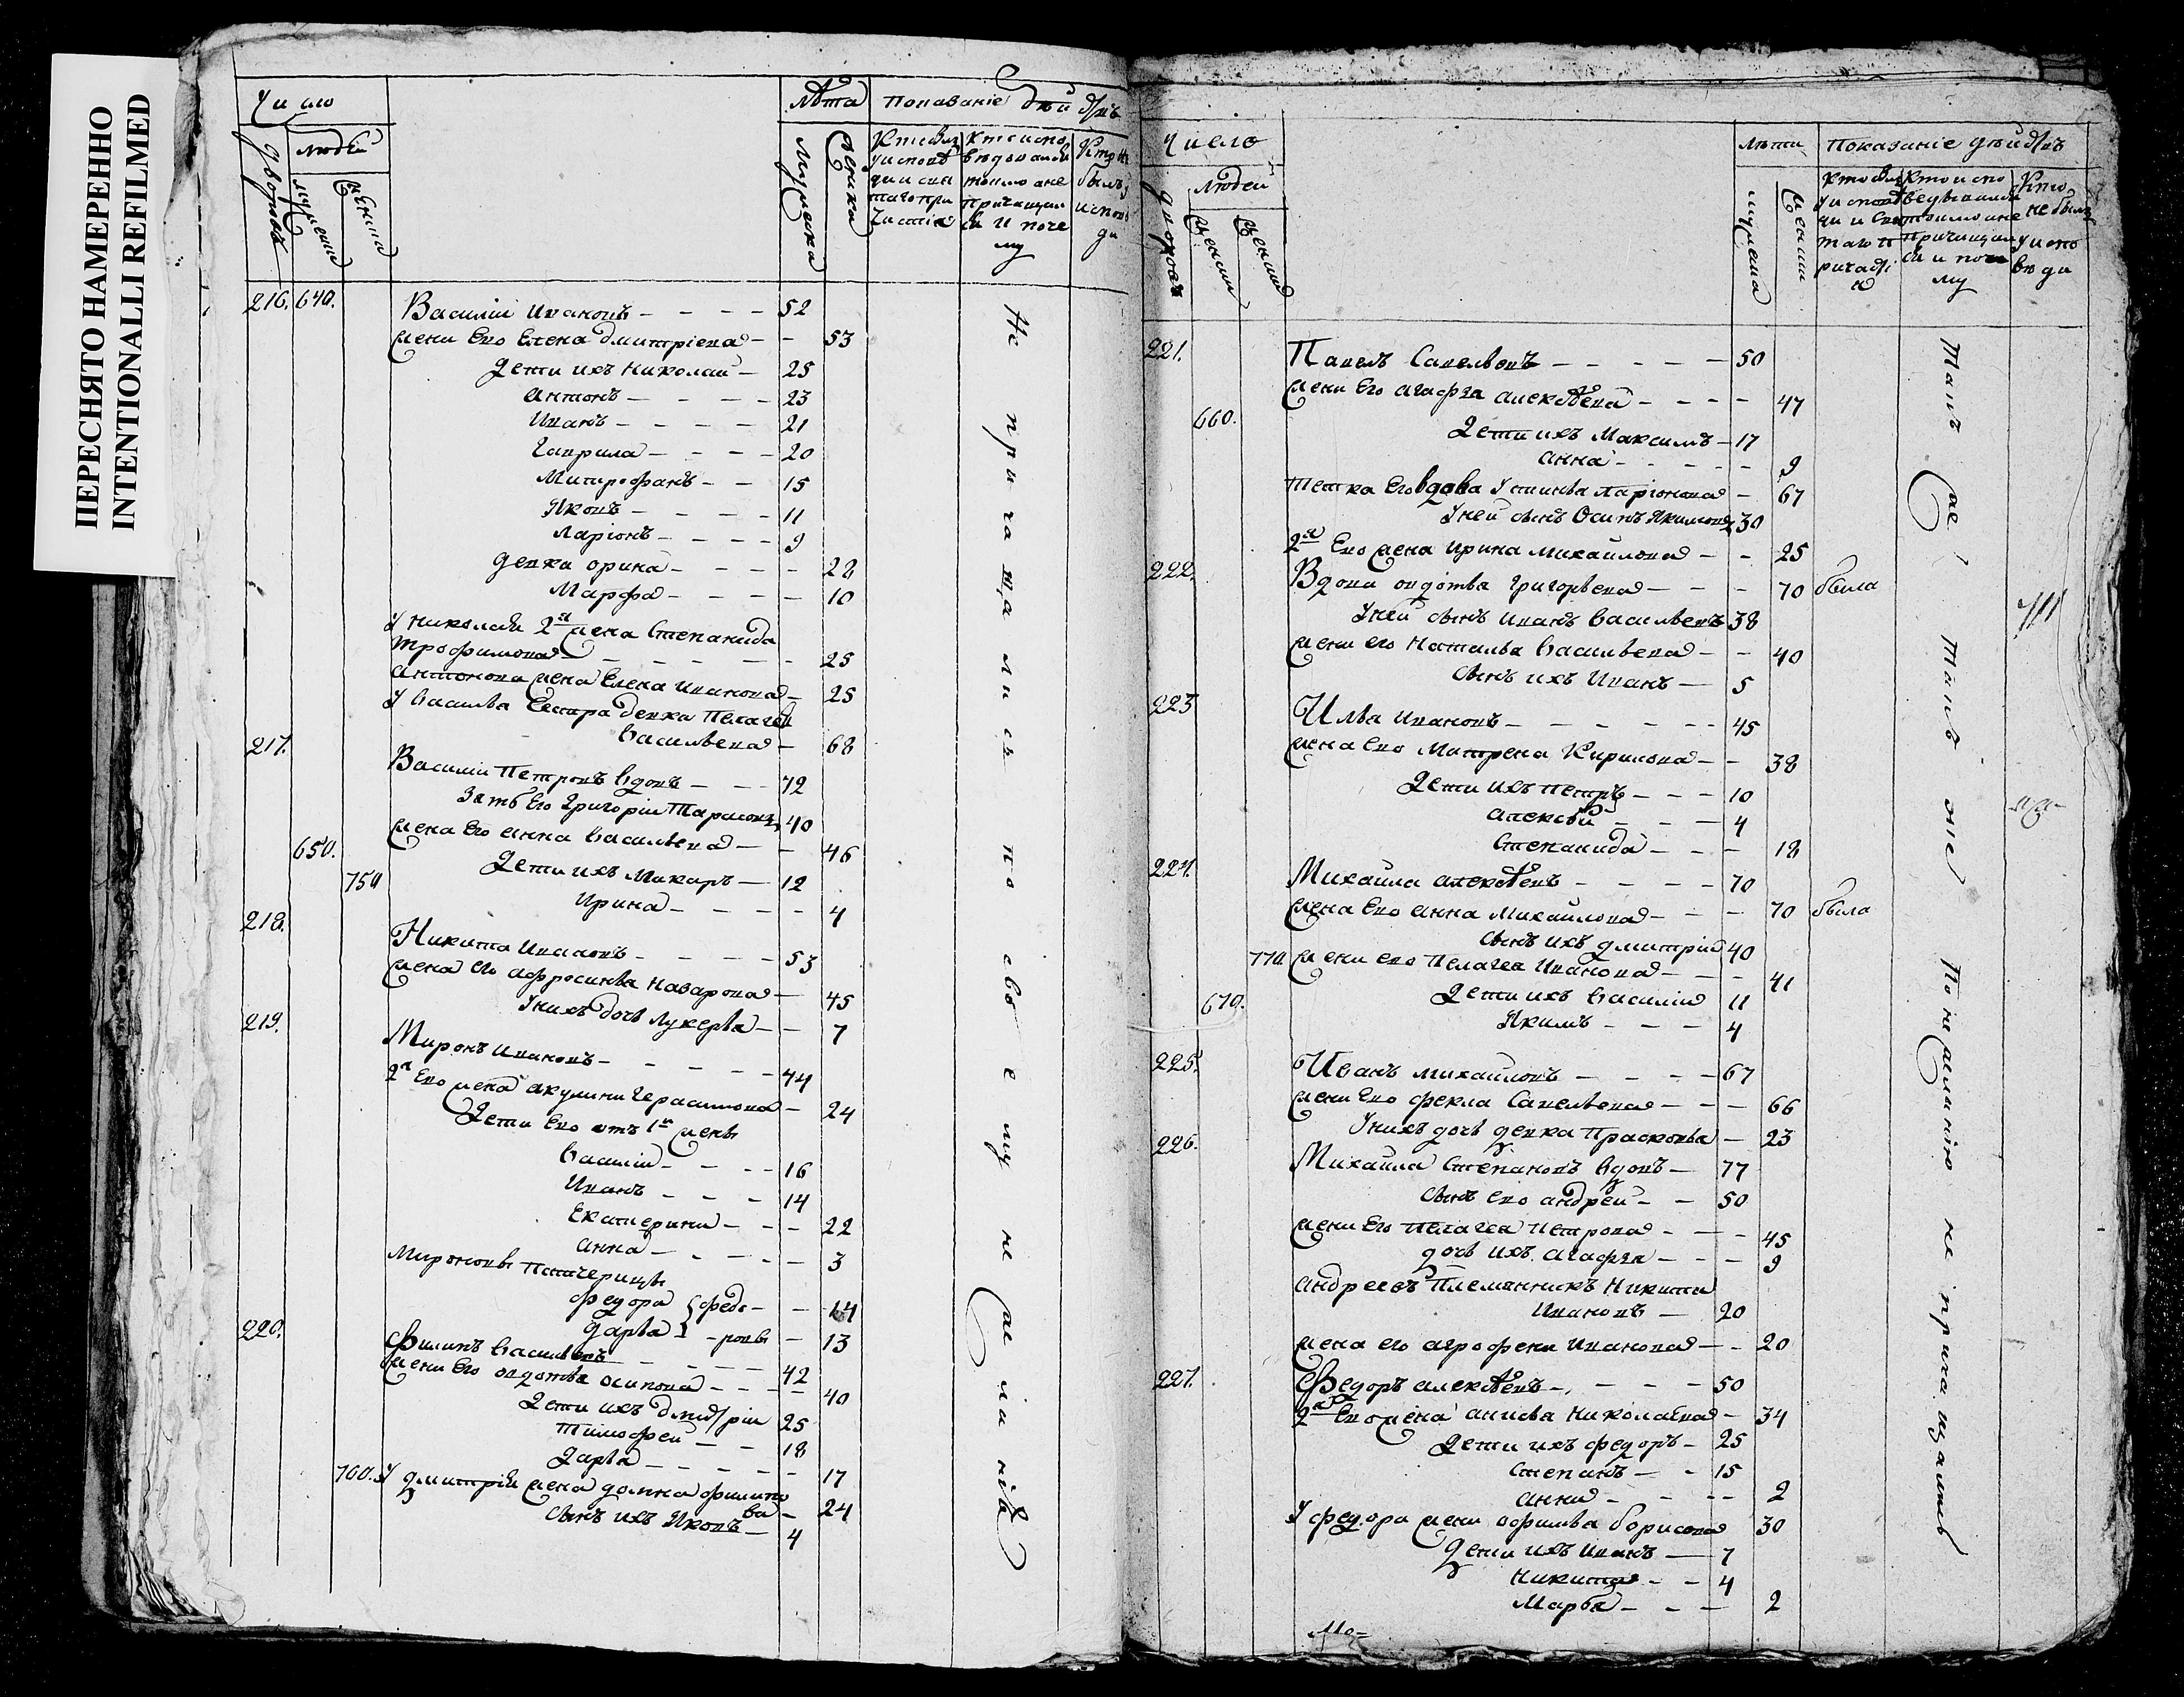 ПЕРЕСНЯТО НАМЕРЕННО
INTENTIONALLI REFILMED
Число
дворовъ
людей
мужеска
женска
Лѣта
мужеска
женска
Показаніе дѣйстръ
Кто былъ
у исповѣ
ди и свя
таго при
частія
Кто испо
вѣдовался
токмо а не
причащал
ся и поче
му
Кто не
былъ у
испов
ди
216. 640. Василіи Ивановъ – – – – 52
жена Его Елена дмитріева – – 53
дети ихъ николаи – 25
антонъ – – – – 23
Иванъ – – – – 21
Гаврила – – – – 20
Митрофанъ – – 15
Яковъ – – – – 11
Ларіонъ – – – – 9
девка орина – – – – 22
Марфа – – – – 10
У николая 2я жена Степанида
трофимова – – – – – – 25
антонова жена Елена Иванова – 25
У василья Сестра девка Пелагея
васильева – 68
217. Василіи Петровъ вдовъ – – – 72
Зять Его Григоріи Тарасовъ 40
жена Его анна васильева – – 46
650. дети ихъ Макаръ – 12
750 Ирина – – – – 4
218. Никита Ивановъ – – – – – 53
жена его афросинья назарова – 45
У нихъ дочь лукерья – – 7
219. Миронъ Ивановъ – – – – – 44
2я Его жена акулина герасимова – 24
Дети Его отъ 1й жены
василіи – – – – 16
Иванъ – – – 14
Екатерина – – – 22
анна – – – – – 3
Мироновы Патчерицы
федора } федо – – 14
дарья } – ровы – 13
220. Филипъ васильевъ – – – – – 42
жена Его авдотья осипова – – – – 40
дети ихъ дмитріи 25
тимофеи – – 18
дарья – – – – – 17
760. У дмитрія жена домна филипо
ва – 24
сынъ ихъ Яковъ – 4
Не причащались по своему не раченію
Число
дворовъ
людей
женска
Лѣта
мужеска
женска
Показаніе дѣйстръ
Кто былъ
Кто испо
Кто
не былъ
у испо
вѣди
221. Павелъ Савельевъ – – – – – 50
жена Его агафья алексѣева – – – – 47
660. дети ихъ Максимъ – 17
анна – – – – – 9
тетка Его вдова Устинья ларіонова – 67
У ней сынъ Осипъ Якимовъ 30
2я Его жена ирина михаилова – – 25
222. Вдова авдотья григорьева – – – 70 была
У ней сынъ иванъ васильевъ 38
жена его наталья васильева – – 40
сынъ ихъ Иванъ – 5
223 Илья ивановъ – – – – – – 45
жена Его Матрена Кирилова – – 38
дети ихъ петръ – – – 10
алексѣи – – – 4
Степанида – – – 18
224. Михаила алексѣевъ – – – – 70
жена Его анна михаилова – – – 70 была
сынъ ихъ дмитріи 40
770 жена его пелагея Иванова – – – 41
670. дети ихъ василіи 11
Якимъ – – – 4
225. Иванъ михаиловъ – – – – 67
жена Его фекла Савельева – – – 66
У нихъ дочь девка Прасковья – 23
226. Михаила Степановъ вдовъ – 77
сынъ его андреи – – 50
жена Его пелагея Петрова – – – 45
дочь ихъ агафья – – – 9
андреевъ племянникъ Никита
Ивановъ – 20
жена его аграфена иванова – – 20
227. Федоръ алексѣевъ – – – – 50
2я Его жена анисья николаева – 34
дети ихъ федоръ – 25
Степанъ – – 15
анна – – – – 2
У федора жена офимья борисова 30
дети ихъ иванъ – 7
никита – – 4
Марфа – – – 2
Мо=
Такъ же По нераченію не причащались